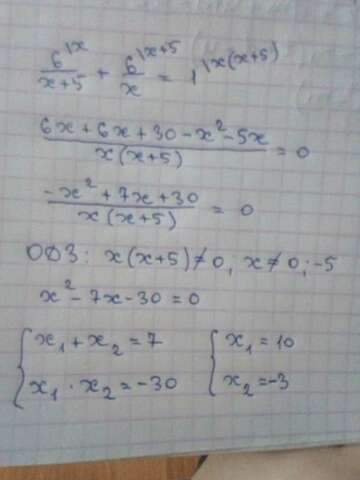 6^{\x}/(x+5) + 6^{\x+5}/x = 1^{\x(x+5)}
(6x+6x+30-x²-5x)/(x(x+5)) = 0
(-x²+7x+30)/(x(x+5)) = 0
ОДЗ: x(x+5)≠0, x≠0;-5
x²-7x-30=0
{x₁+x₂=7 {x₁=10
{x₁·x₂=-30 {x₂=-3